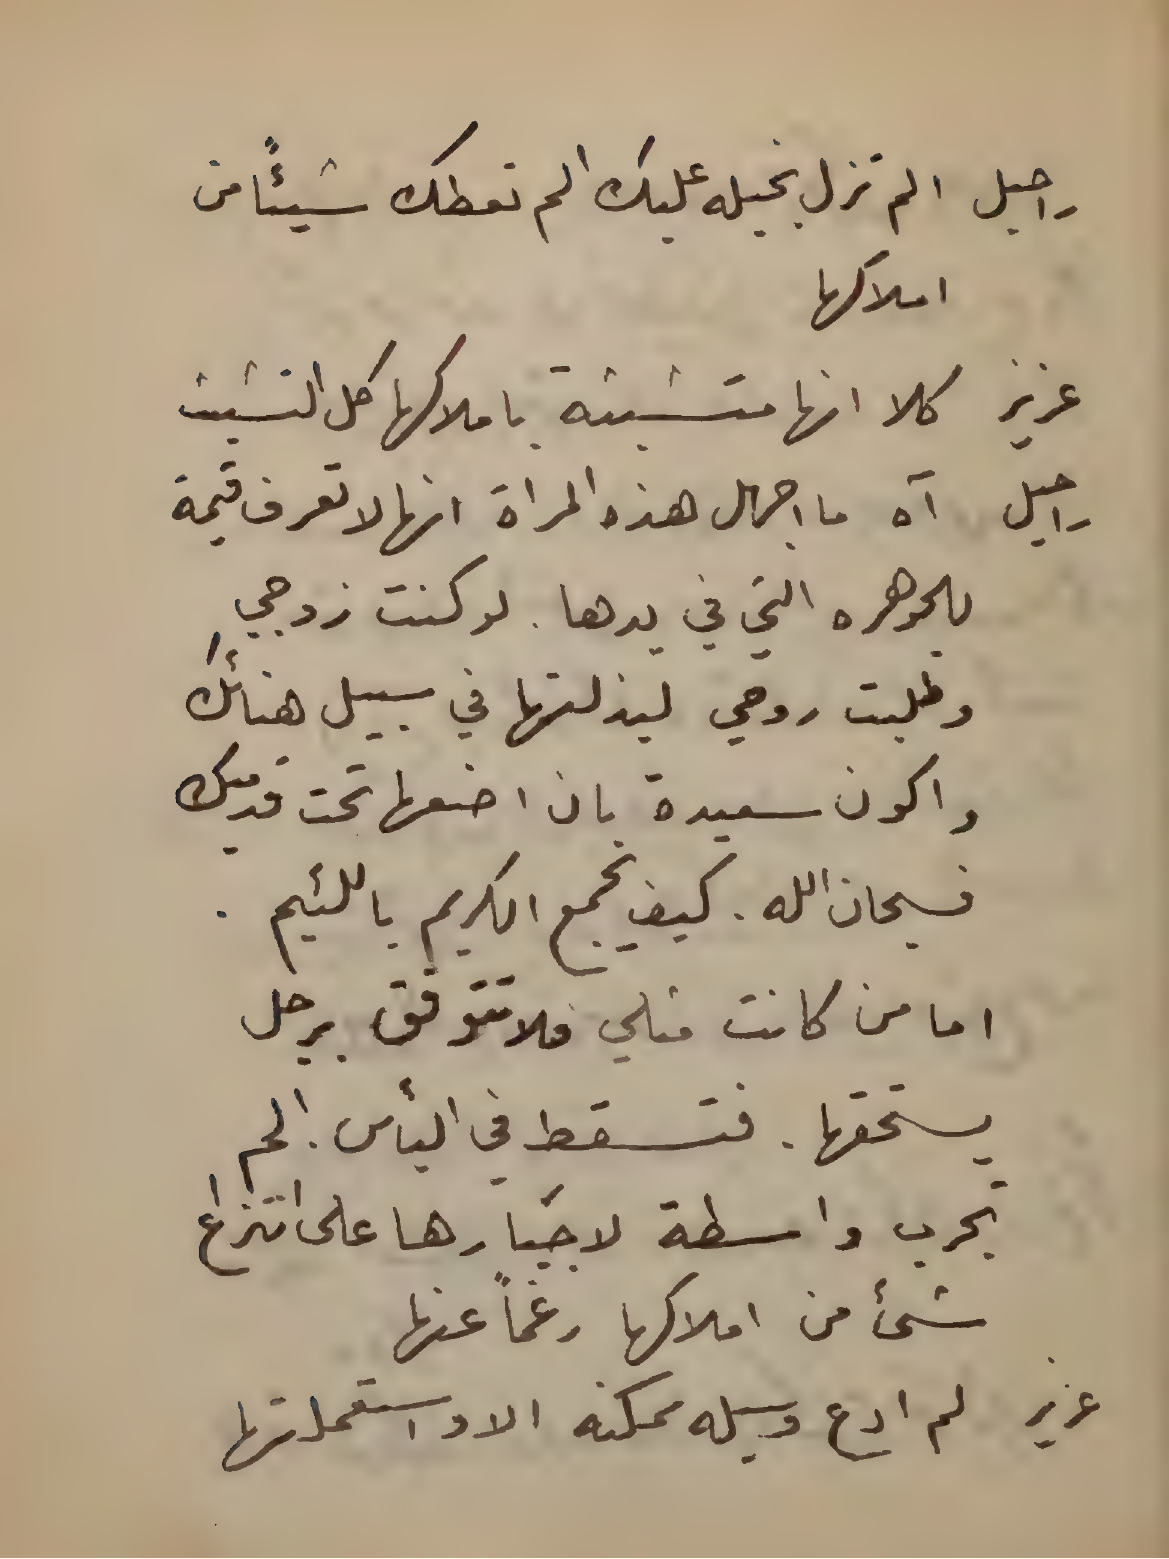 راحيل الم تزل بخيله عليك الم تعطك شيئًا من
املاكها
عزيز كلا انها متشبثة باملاكها كل التشبث
راحيل آه ما اجهل هذه المراة انها لا تعرف قيمة
الجوهره التي في يدها . لو كنت زوجي
وطلبت روحي لبذلتها في سبيل هنائك
واكون سعيدة بان اضعها تحت قدميك
فسبحان الله . كيف يجمع الكريم باللئيم .
اما من كانت مثلي فلا تتوفق برجل
يستحقها . فتسقط في اليأس . الم
تجرب واسطة لاجبارها على انتزاع
شئ من املاكها رغماً عنها
عزيز لم ادع وسيله ممكنه الا واستعملتها